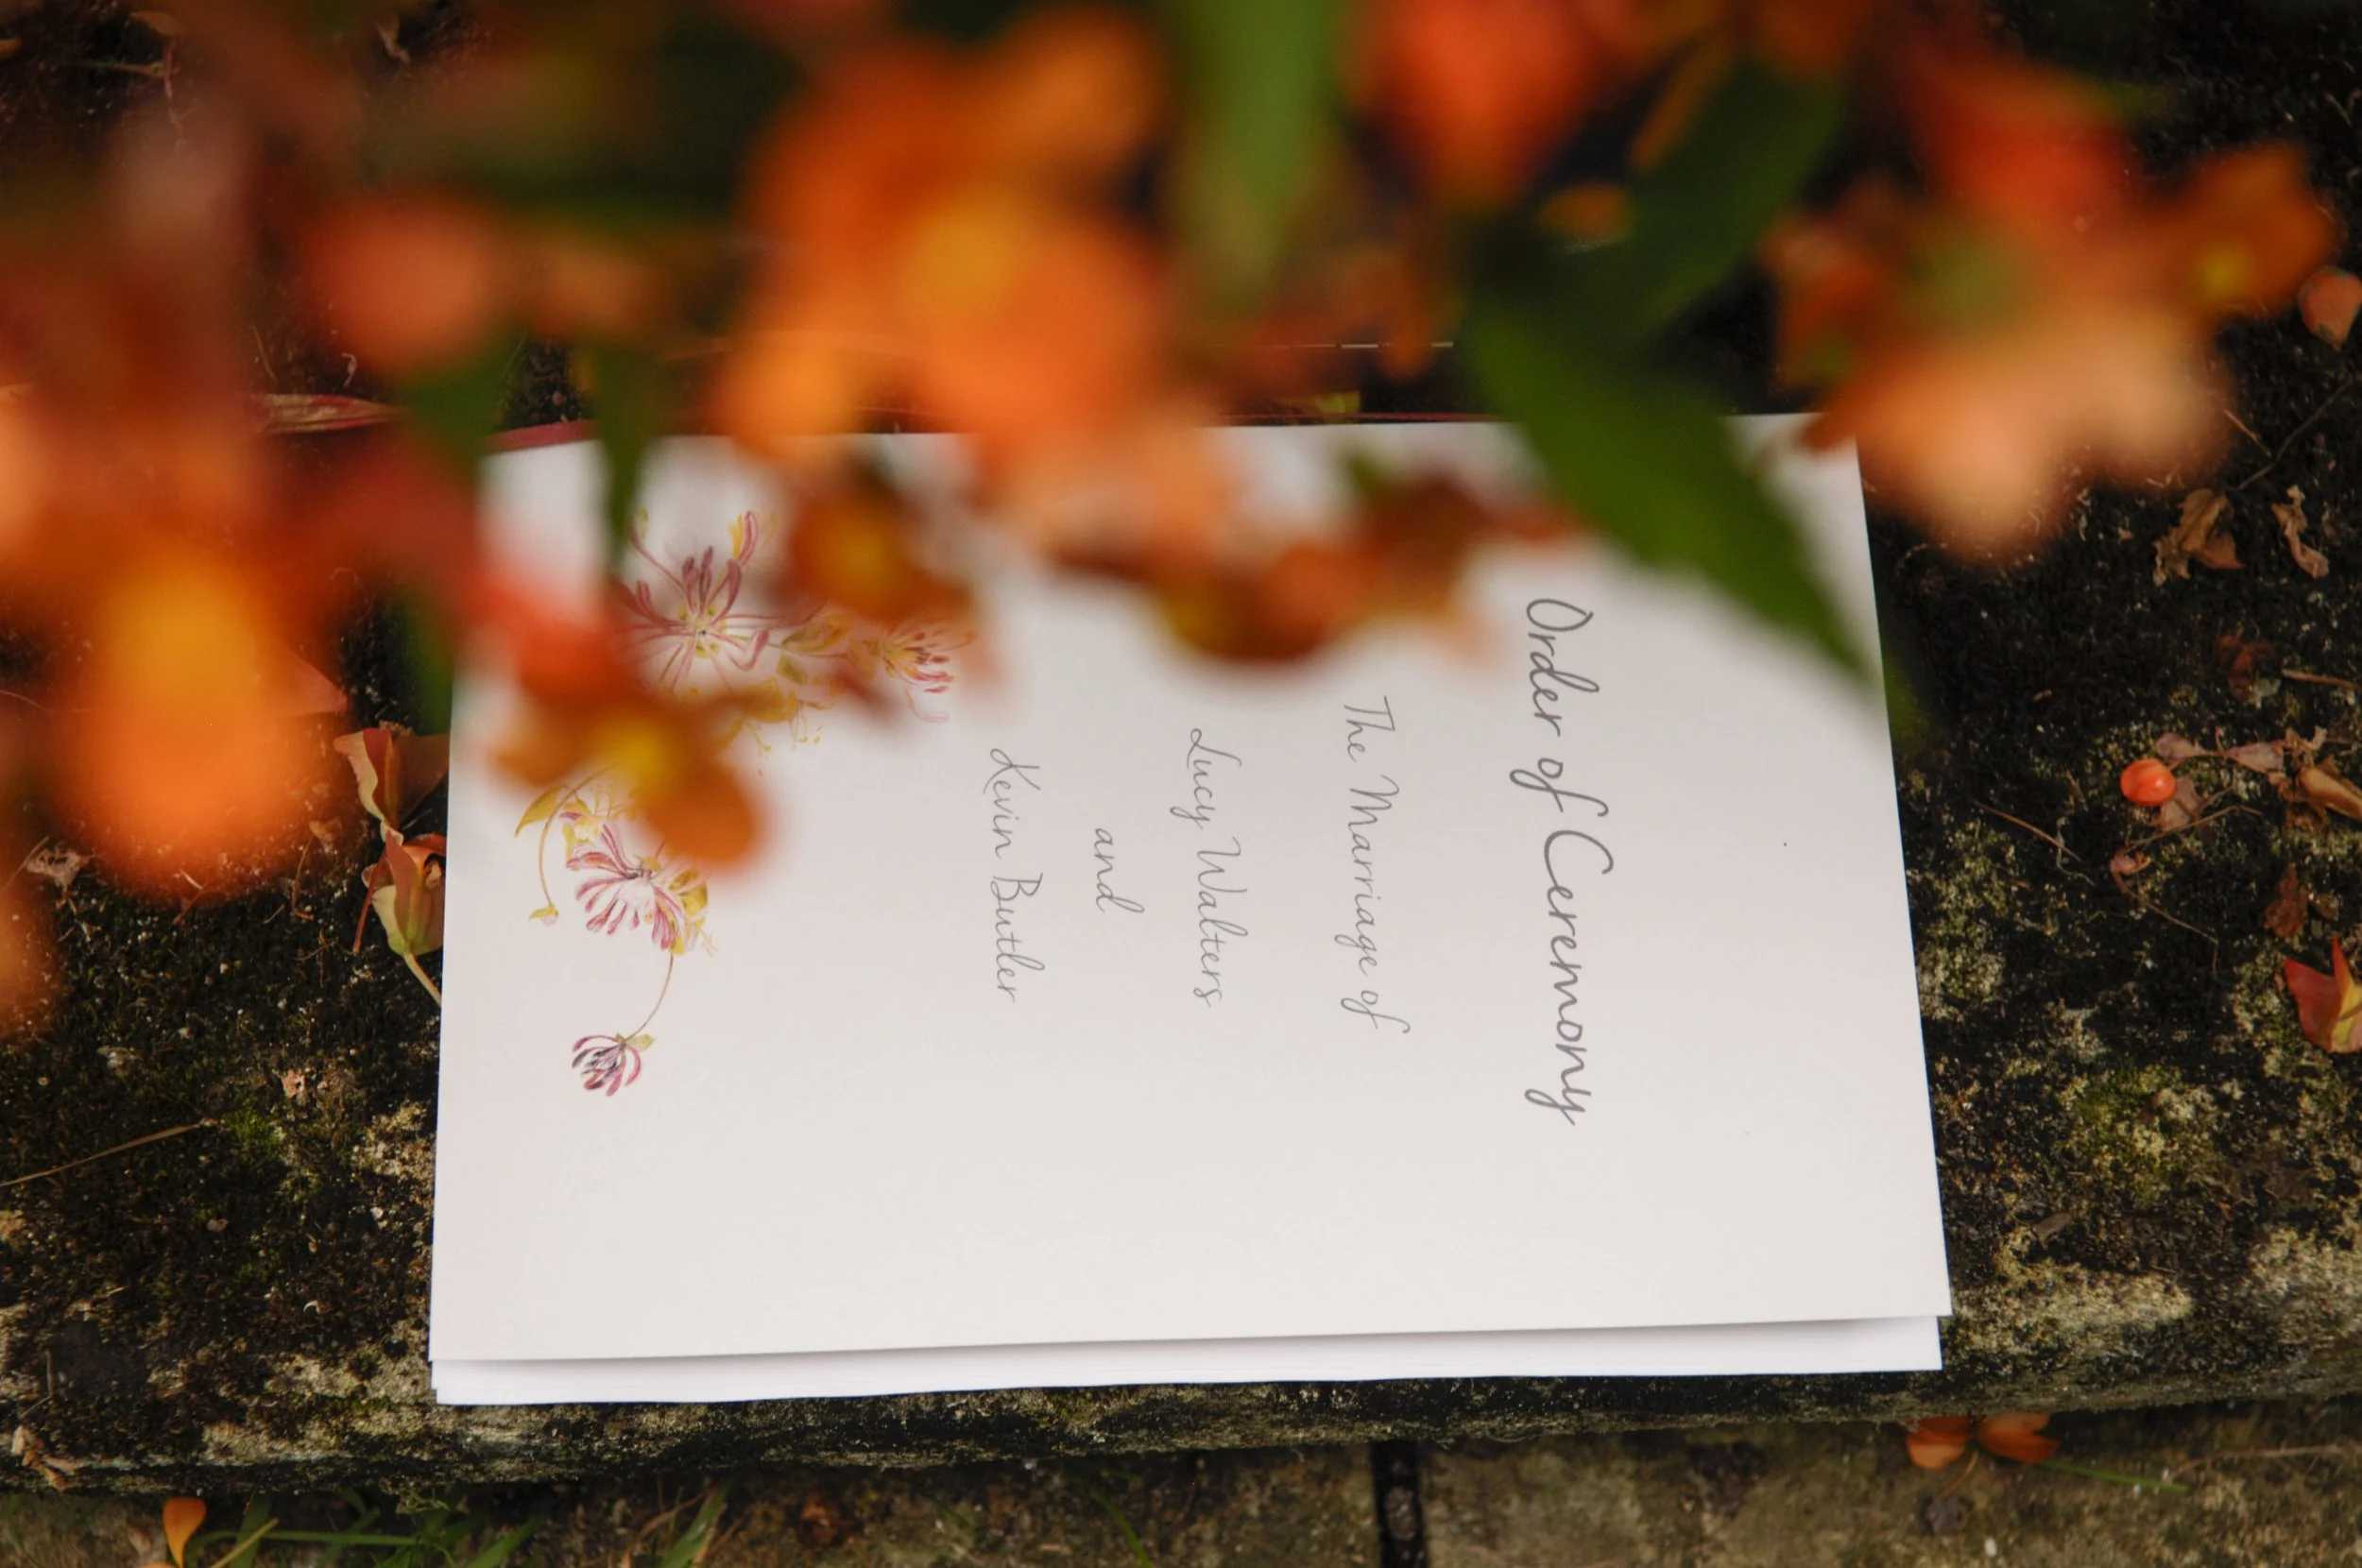 Order of Ceremony
The Marriage of
Lucy Walters
and
Kevin Butler